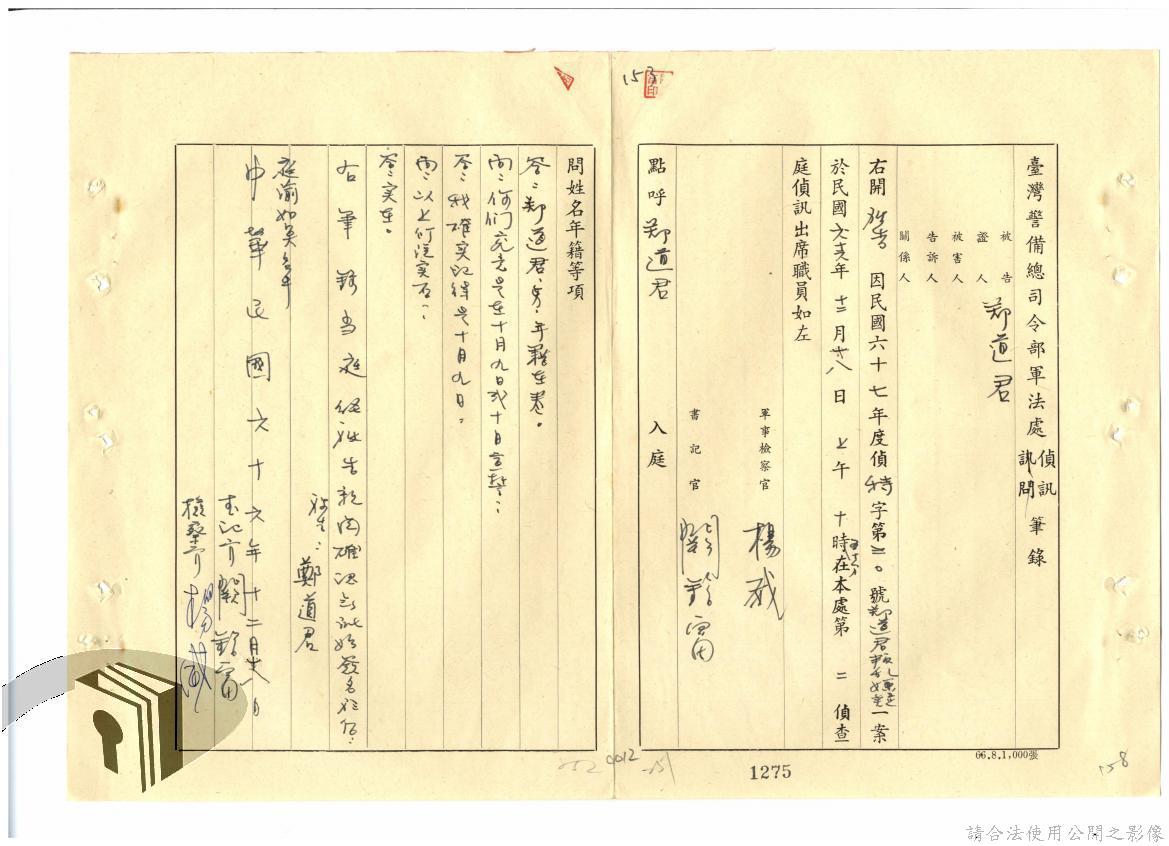 153
臺灣警備總司令部軍法處偵訊訊問筆錄
被告 鄭道君
證人
被害人
告訴人
關係人
右開被告因民國六十七年度偵特字第三〇號鄭道君叛亂嫌疑一案
於民國六十六年十二月十八日上午十時在本處第二偵查
庭偵訊出席職員如左
軍事檢察官 楊威
書記官
點呼鄭道君 入庭
66.8.1,000張
1275
158
問姓名年籍等項
答:鄭道君,男,年籍在卷。
問:你們宣誓是在十月九日或十日宣誓?
答:我確實記得是十月九日。
問:以上所說實在?
答:實在。
右筆錄当庭經被告親閱確認無訛始簽名於后:
被告:鄭道君
庭諭如矣
中華民國六十六年十二月十八日
書記官
檢察官 楊威
0012
請合法使用公開之影像